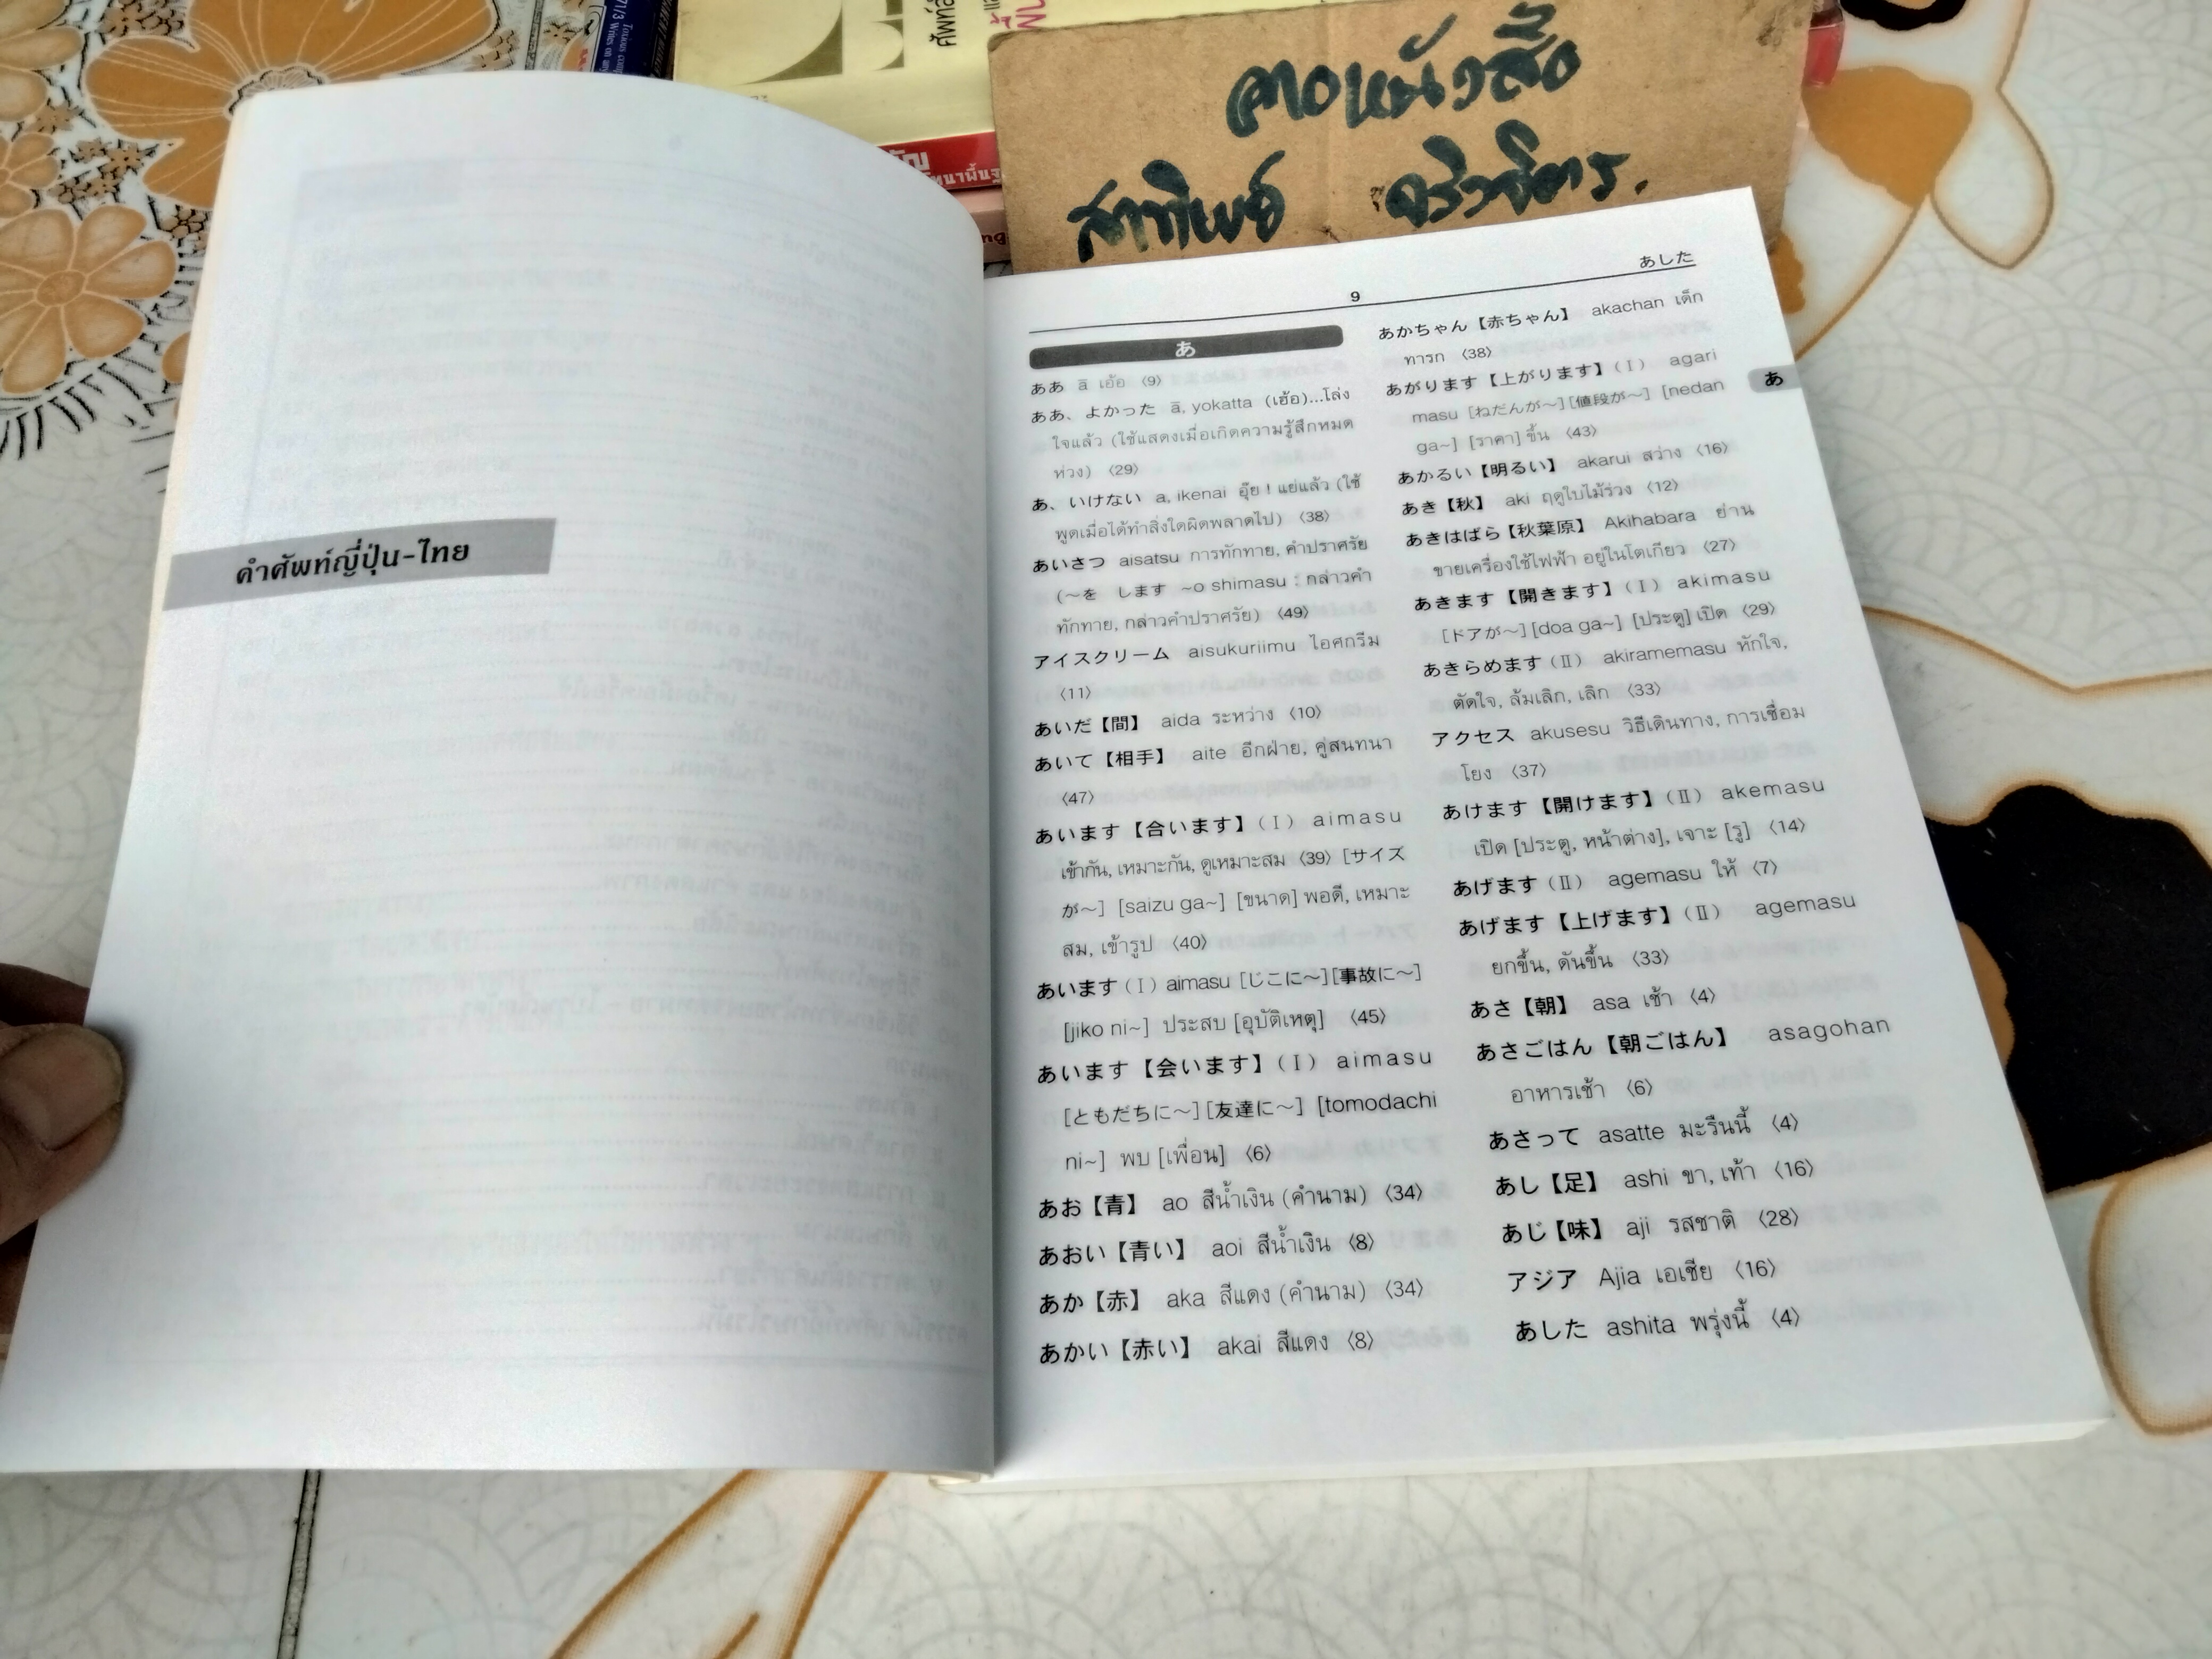 71/3
ศัพท์
คำศัพท์ญี่ปุ่น-ไทย
9
あした
あ
ああ ā เอ้อ 〈9〉
ああ、よかった ā, yokatta (เฮ้อ)...โล่ง
ใจแล้ว (ใช้แสดงเมื่อเกิดความรู้สึกหมด
ห่วง) 〈29〉
あ、いけない a, ikenai อุ๊ย ! แย่แล้ว (ใช้
พูดเมื่อได้ทำสิ่งใดผิดพลาดไป) 〈38〉
あいさつ aisatsu การทักทาย, คำปราศรัย
(～を します ~o shimasu : กล่าวคำ
ทักทาย, กล่าวคำปราศรัย) 〈49〉
アイスクリーム aisukuriimu ไอศกรีม
〈11〉
あいだ【間】 aida ระหว่าง 〈10〉
あいて【相手】 aite อีกฝ่าย, คู่สนทนา
〈47〉
あいます【合います】(Ⅰ) aimasu
เข้ากัน, เหมาะกัน, ดูเหมาะสม 〈39〉 [サイズ
が～] [saizu ga~] [ขนาด] พอดี, เหมาะ
สม, เข้ารูป 〈40〉
あいます(Ⅰ) aimasu [じこに～][事故に～]
[jiko ni~] ประสบ [อุบัติเหตุ] 〈45〉
あいます【会います】(Ⅰ) aimasu
[ともだちに～][友達に～] [tomodachi
ni~] พบ [เพื่อน] 〈6〉
あお【青】 ao สีน้ำเงิน (คำนาม) 〈34〉
あおい【青い】 aoi สีน้ำเงิน 〈8〉
あか【赤】 aka สีแดง (คำนาม) 〈34〉
あかい【赤い】 akai สีแดง 〈8〉
あかちゃん【赤ちゃん】 akachan เด็ก
ทารก 〈38〉
あがります【上がります】(Ⅰ) agari
masu [ねだんが～][値段が～] [nedan
ga~] [ราคา] ขึ้น 〈43〉
あかるい【明るい】 akarui สว่าง 〈16〉
あき【秋】 aki ฤดูใบไม้ร่วง 〈12〉
あきはばら【秋葉原】 Akihabara ย่าน
ขายเครื่องใช้ไฟฟ้า อยู่ในโตเกียว 〈27〉
あきます【開きます】(Ⅰ) akimasu
[ドアが～][doa ga~] [ประตู] เปิด 〈29〉
あきらめます(Ⅱ) akiramemasu หักใจ,
ตัดใจ, ล้มเลิก, เลิก 〈33〉
アクセス akusesu วิธีเดินทาง, การเชื่อม
โยง 〈37〉
あけます【開けます】(Ⅱ) akemasu
เปิด [ประตู, หน้าต่าง], เจาะ [รู] 〈14〉
あげます(Ⅱ) agemasu ให้ 〈7〉
あげます【上げます】(Ⅱ) agemasu
ยกขึ้น, ดันขึ้น 〈33〉
あさ【朝】 asa เช้า 〈4〉
あさごはん【朝ごはん】 asagohan
อาหารเช้า 〈6〉
あさって asatte มะรืนนี้ 〈4〉
あし【足】 ashi ขา, เท้า 〈16〉
あじ【味】 aji รสชาติ 〈28〉
アジア Ajia เอเชีย 〈16〉
あした ashita พรุ่งนี้ 〈4〉
あ